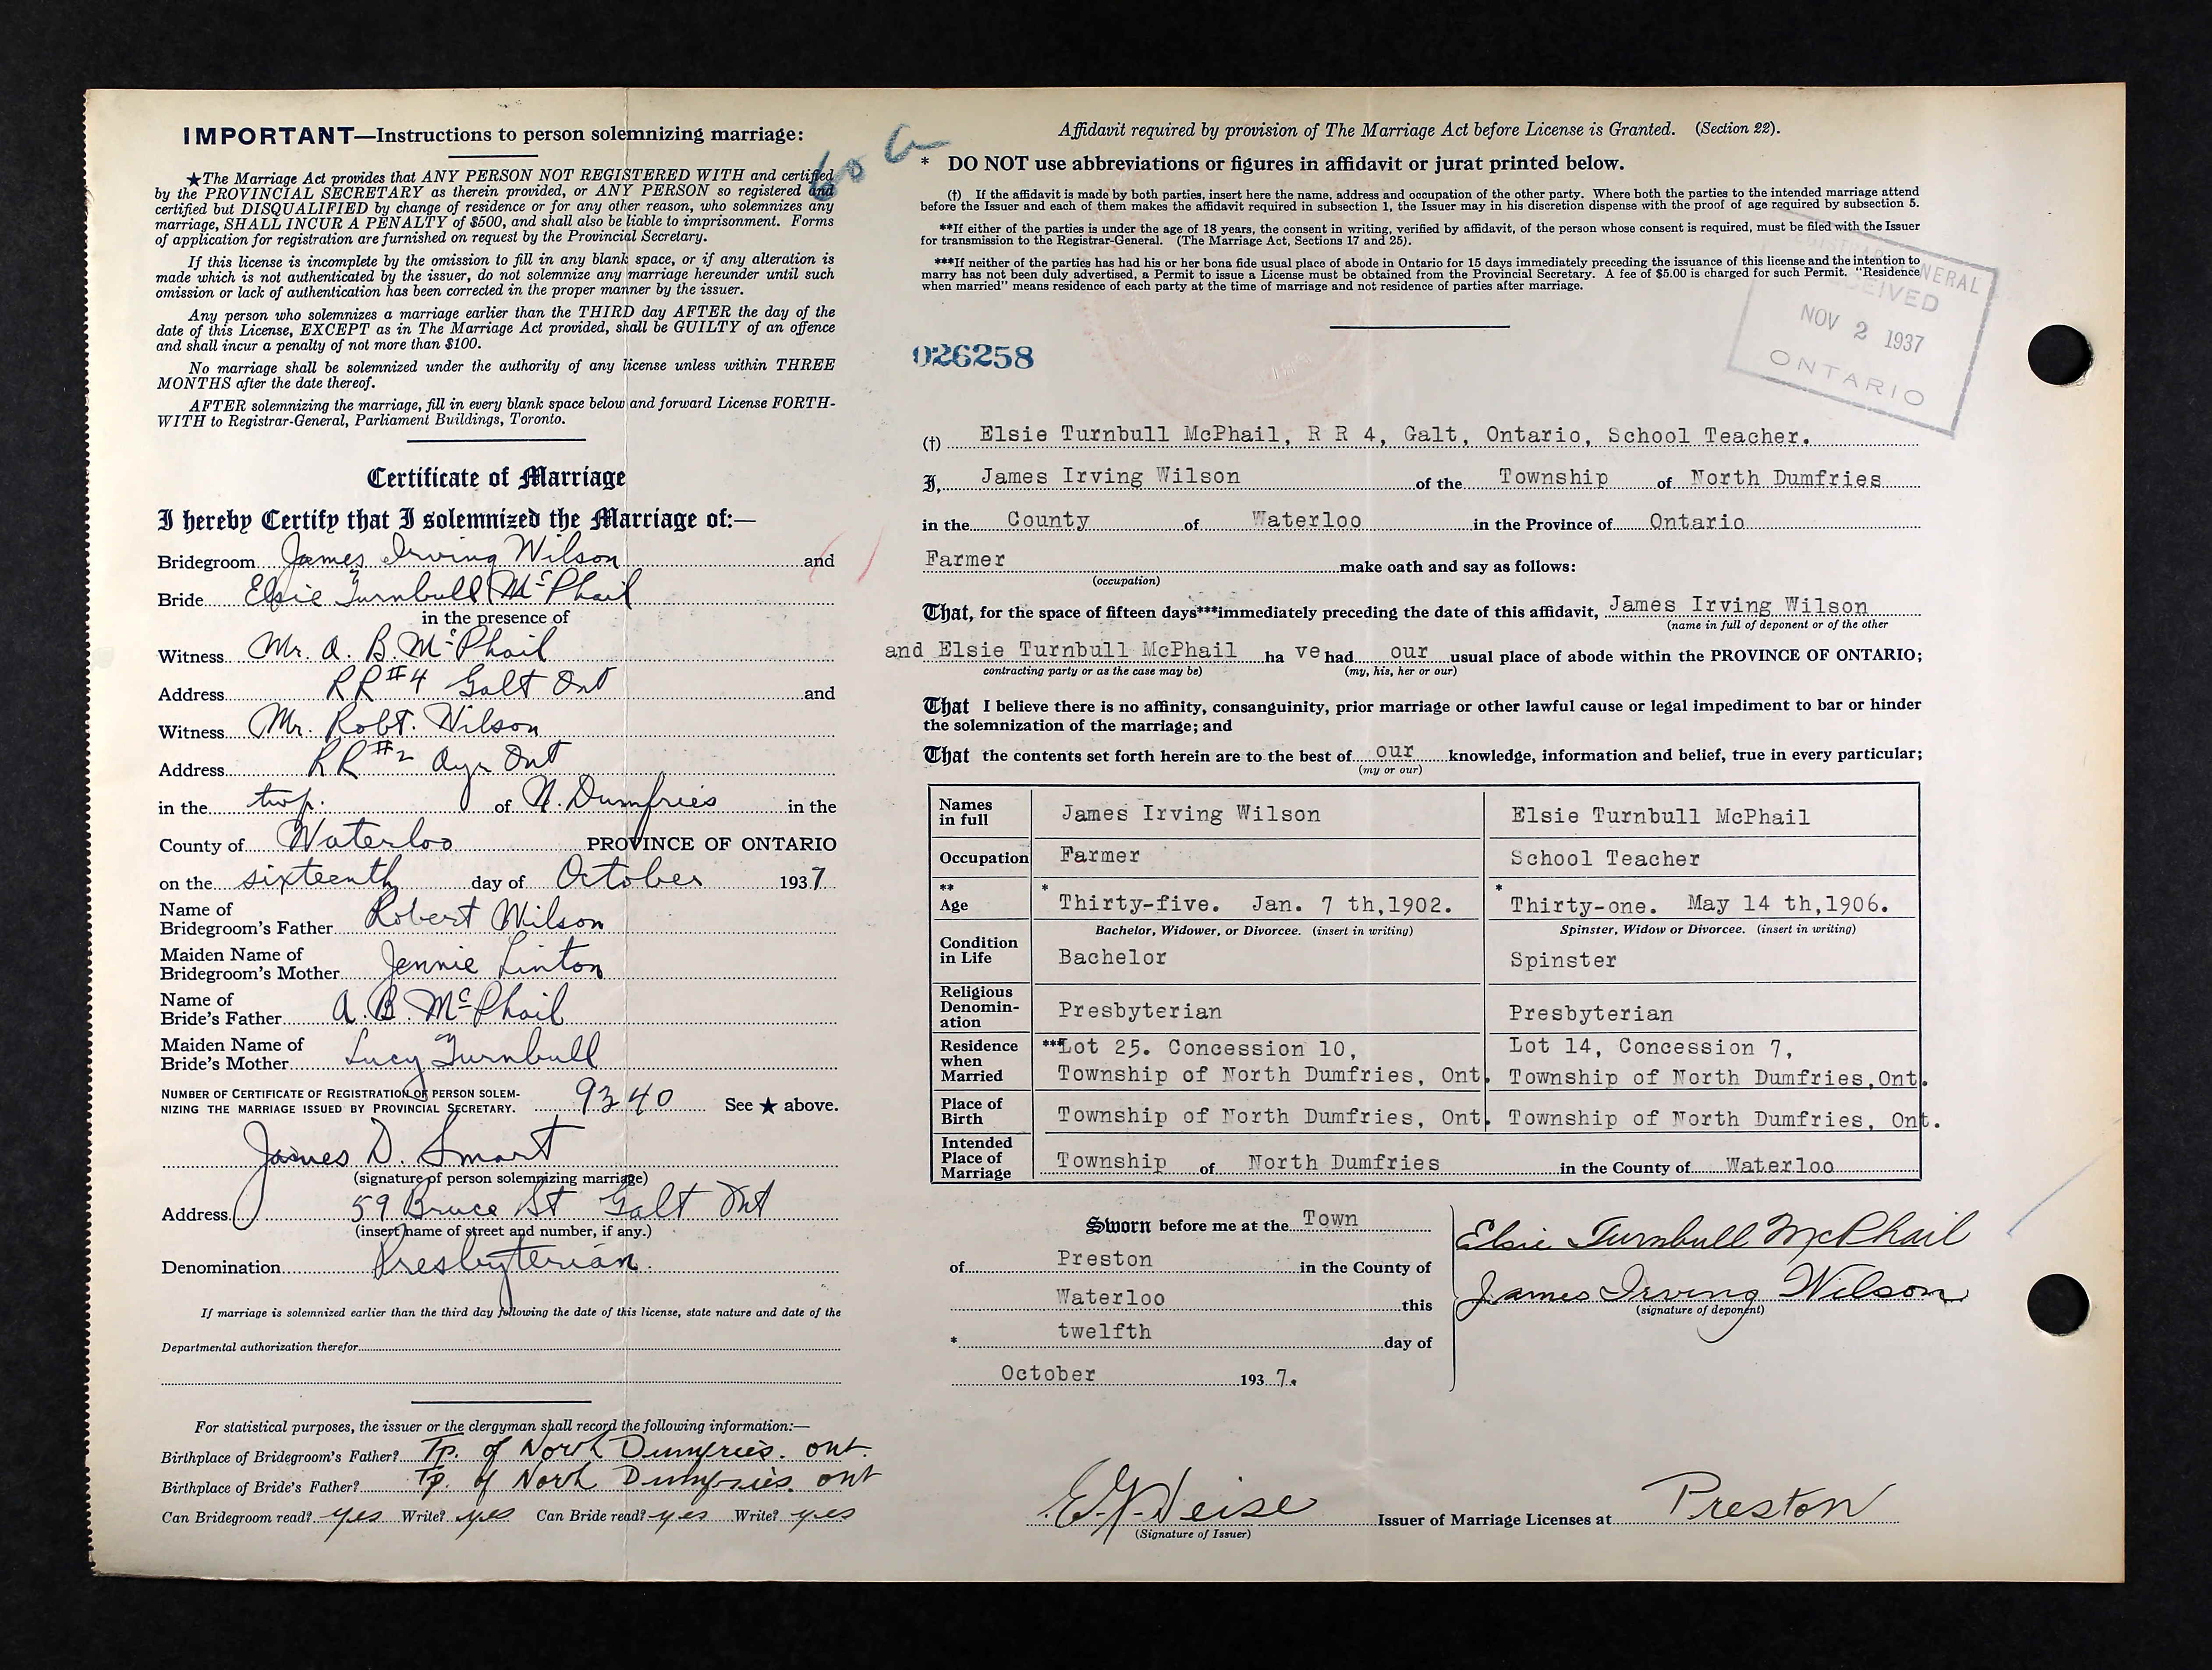 IMPORTANT—Instructions to person solemnizing marriage:
★The Marriage Act provides that ANY PERSON NOT REGISTERED WITH and certified
by the PROVINCIAL SECRETARY as therein provided, or ANY PERSON so registered and
certified but DISQUALIFIED by change of residence or for any other reason, who solemnizes any
marriage, SHALL INCUR A PENALTY of $500, and shall also be liable to imprisonment. Forms
of application for registration are furnished on request by the Provincial Secretary.
If this license is incomplete by the omission to fill in any blank space, or if any alteration is
made which is not authenticated by the issuer, do not solemnize any marriage hereunder until such
omission or lack of authentication has been corrected in the proper manner by the issuer.
Any person who solemnizes a marriage earlier than the THIRD day AFTER the day of the
date of this License, EXCEPT as in The Marriage Act provided, shall be GUILTY of an offence
and shall incur a penalty of not more than $100.
No marriage shall be solemnized under the authority of any license unless within THREE
MONTHS after the date thereof.
AFTER solemnizing the marriage, fill in every blank space below and forward License FORTH-
WITH to Registrar-General, Parliament Buildings, Toronto.
Certificate of Marriage
I hereby Certify that I solemnized the Marriage of:—
Bridegroom James Irving Wilson and
Bride Elsie Turnbull McPhail
in the presence of
Witness Mr. A. B. McPhail
Address RR #4 Galt Ont and
Witness Mr. Robt. Wilson
Address RR #2 Ayr Ont
in the twp. of N. Dumfries in the
County of Waterloo PROVINCE OF ONTARIO
on the sixteenth day of October 1937
Name of
Bridegroom's Father Robert Wilson
Maiden Name of
Bridegroom's Mother Jennie Linton
Name of
Bride's Father A. B. McPhail
Maiden Name of
Bride's Mother Lucy Turnbull
NUMBER OF CERTIFICATE OF REGISTRATION OF PERSON SOLEM-
NIZING THE MARRIAGE ISSUED BY PROVINCIAL SECRETARY. 9340 See ★ above.
James D. Smart
(signature of person solemnizing marriage)
Address 59 Bruce St Galt Ont
(insert name of street and number, if any.)
Denomination Presbyterian.
If marriage is solemnized earlier than the third day following the date of this license, state nature and date of the
Departmental authorization therefor
For statistical purposes, the issuer or the clergyman shall record the following information:—
Birthplace of Bridegroom's Father? Tp. of North Dumfries. ont.
Birthplace of Bride's Father? Tp. of North Dumfries. ont
Can Bridegroom read? yes Write? yes Can Bride read? yes Write? yes
Affidavit required by provision of The Marriage Act before License is Granted. (Section 22).
* DO NOT use abbreviations or figures in affidavit or jurat printed below.
(†) If the affidavit is made by both parties, insert here the name, address and occupation of the other party. Where both the parties to the intended marriage attend
before the Issuer and each of them makes the affidavit required in subsection 1, the Issuer may in his discretion dispense with the proof of age required by subsection 5.
**If either of the parties is under the age of 18 years, the consent in writing, verified by affidavit, of the person whose consent is required, must be filed with the Issuer
for transmission to the Registrar-General. (The Marriage Act, Sections 17 and 25).
***If neither of the parties has had his or her bona fide usual place of abode in Ontario for 15 days immediately preceding the issuance of this license and the intention to
marry has not been duly advertised, a Permit to issue a License must be obtained from the Provincial Secretary. A fee of $5.00 is charged for such Permit. "Residence
when married" means residence of each party at the time of marriage and not residence of parties after marriage.
REGISTRAR GENERAL
RECEIVED
NOV 2 1937
ONTARIO
026258
(†) Elsie Turnbull McPhail, R R 4, Galt, Ontario, School Teacher.
I, James Irving Wilson of the Township of North Dumfries
in the County of Waterloo in the Province of Ontario
Farmer make oath and say as follows:
(occupation)
That, for the space of fifteen days***immediately preceding the date of this affidavit, James Irving Wilson
(name in full of deponent or of the other
and Elsie Turnbull McPhail ha ve had our usual place of abode within the PROVINCE OF ONTARIO;
contracting party or as the case may be) (my, his, her or our)
That I believe there is no affinity, consanguinity, prior marriage or other lawful cause or legal impediment to bar or hinder
the solemnization of the marriage; and
That the contents set forth herein are to the best of our knowledge, information and belief, true in every particular;
(my or our)
Names in full James Irving Wilson Elsie Turnbull McPhail
Occupation Farmer School Teacher
** Age * Thirty-five. Jan. 7 th,1902. * Thirty-one. May 14 th,1906.
Bachelor, Widower, or Divorcee. (insert in writing) Spinster, Widow or Divorcee. (insert in writing)
Condition in Life Bachelor Spinster
Religious Denomin-ation Presbyterian Presbyterian
Residence when Married ***Lot 25. Concession 10, Lot 14, Concession 7,
Township of North Dumfries, Ont. Township of North Dumfries,Ont.
Place of Birth Township of North Dumfries, Ont. Township of North Dumfries, Ont.
Intended Place of Marriage Township of North Dumfries in the County of Waterloo
Sworn before me at the Town
of Preston in the County of
Waterloo this
* twelfth day of
October 1937.
Elsie Turnbull McPhail
James Irving Wilson
(signature of deponent)
Heise
(Signature of Issuer)
Issuer of Marriage Licenses at Preston